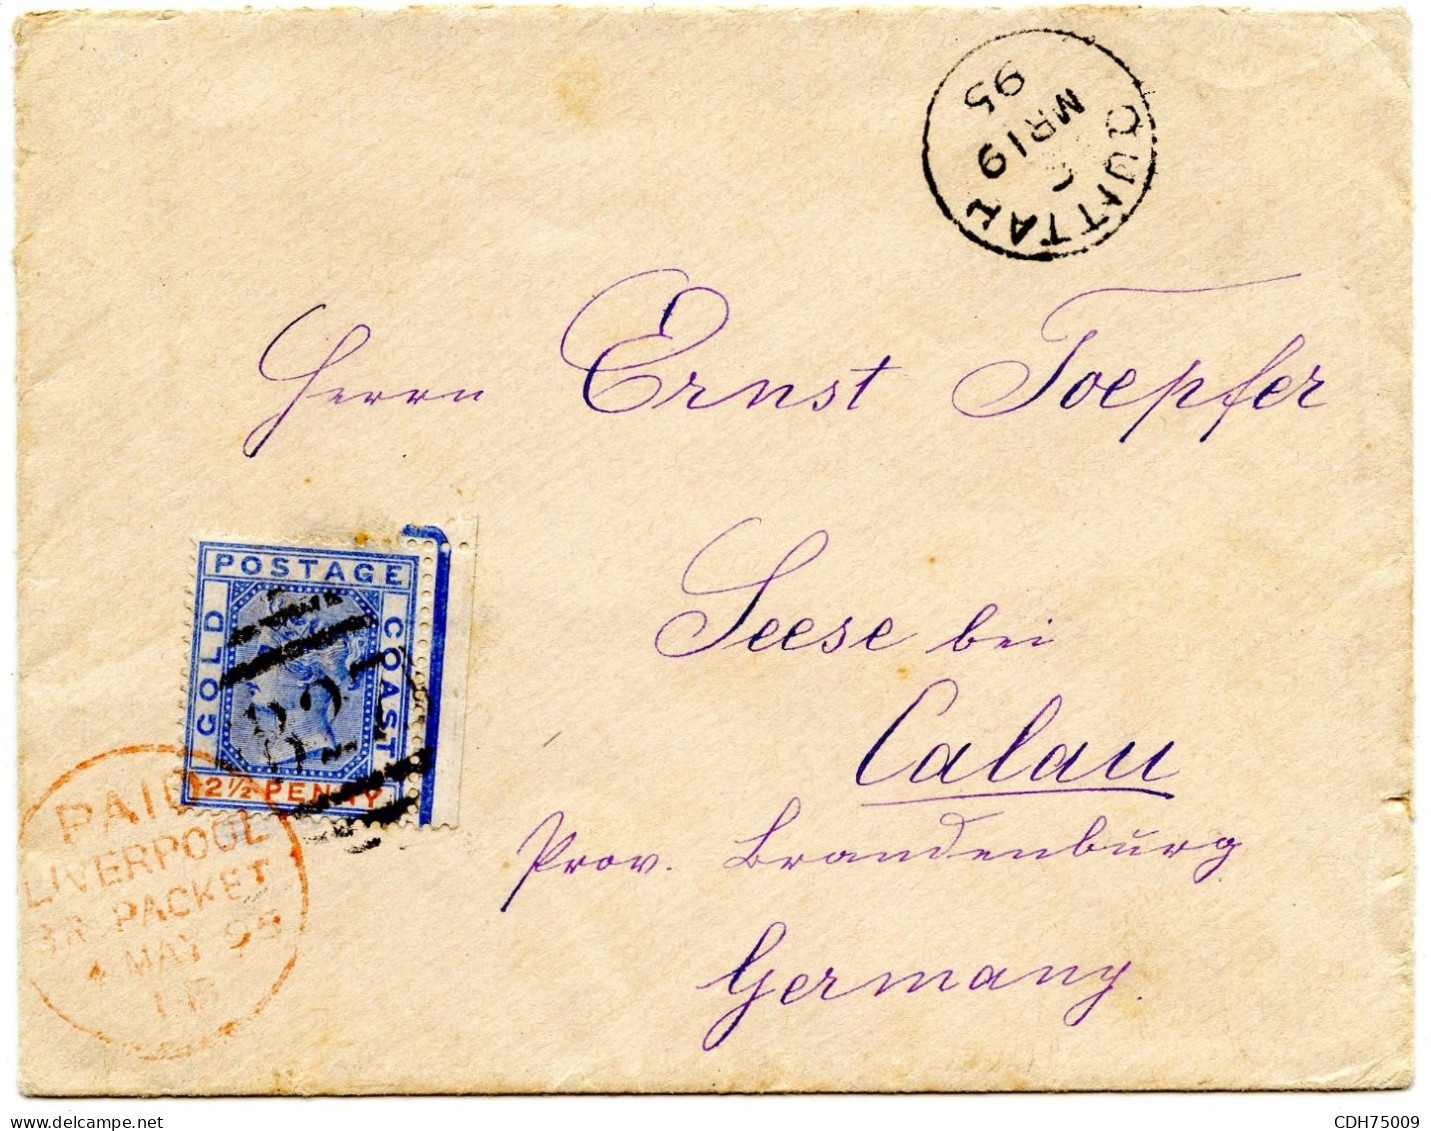 QUITTAH
C
MR 19
95
Herrn Ernst Toepfer
Seese bei
Calau
Prov. Brandenburg
Germany.
POSTAGE
GOLD
COAST
2½ PENNY
PAID
LIVERPOOL
BR. PACKET
4 MAY 95
CDH75009